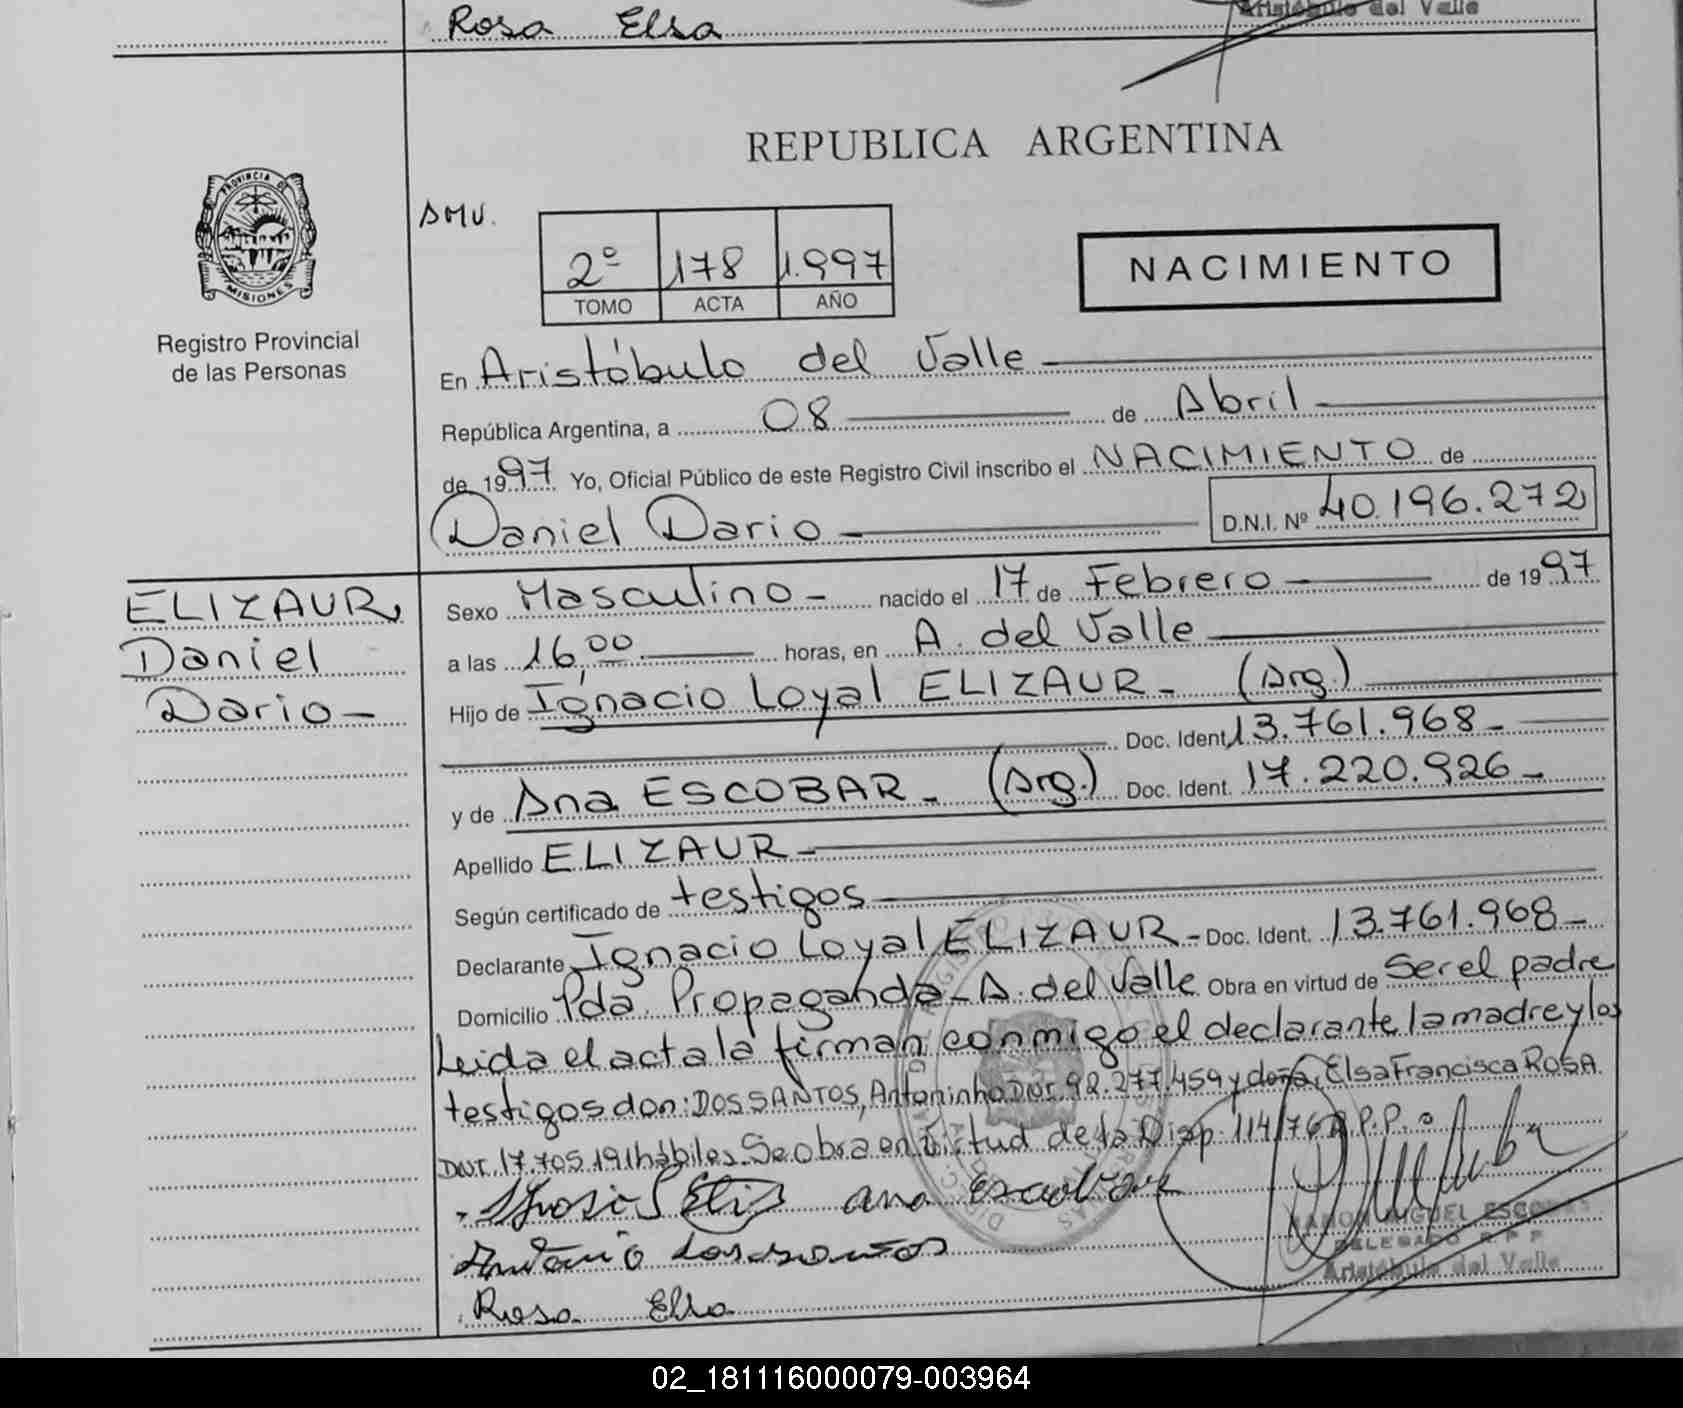 Rosa Elsa
Aristóbulo del Valle
REPUBLICA ARGENTINA
PROVINCIA DE
MISIONES
Registro Provincial
de las Personas
DMV.
2º 178 1.997
TOMO ACTA AÑO
NACIMIENTO
En Aristóbulo del Valle
República Argentina, a 08 de Abril
de 1997 Yo, Oficial Público de este Registro Civil inscribo el NACIMIENTO de
Daniel Dario D.N.I. Nº 40.196.272
ELIZAUR,
Daniel
Dario-
Sexo Masculino- nacido el 17 de Febrero de 1997
a las 16,00 horas, en A. del Valle
Hijo de Ignacio Loyal ELIZAUR- (Arg.)
Doc. Ident. 13.761.968-
y de Ana ESCOBAR- (Arg.) Doc. Ident. 17.220.926-
Apellido ELIZAUR-
Según certificado de testigos
Declarante Ignacio Loyal ELIZAUR- Doc. Ident. 13.761.968-
Domicilio Pda. Propaganda- A. del Valle Obra en virtud de Ser el padre
Leida el acta la firman conmigo el declarante la madre y los
testigos don: DOS SANTOS, Antoninho DNI. 92.277.459 y doña, Elsa Francisca ROSA
DNI. 17.705.191 hábiles. Se obra en virtud de la Disp. 114/76 R.P.P.
Ana Escobar
Antonio dos santos
Rosa Elsa
RAMON MIGUEL
DELEGADO R P P
Aristóbulo del Valle
02_181116000079-003964